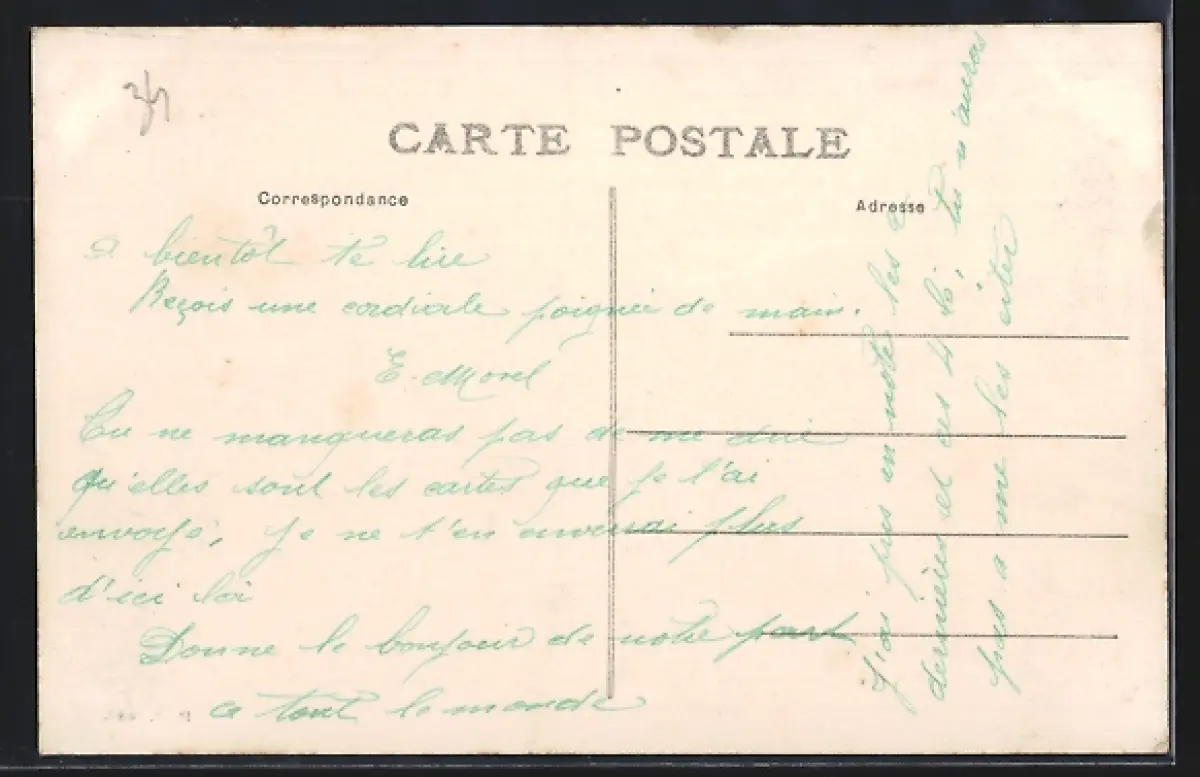 CARTE POSTALE
Correspondance
Adresse
a bientôt te lire
Reçois une cordiale poignée de main.
E. Morel
Tu ne manqueras pas de me dire
qu'elles sont les cartes que je t'ai
envoyé, je ne t'en enverrai plus
d'ici là
Donne le bonjour de notre part
a tout le monde
J'ai pris en note les 2
dernières et ces 4 là, tu n'auras
pas a me les citer